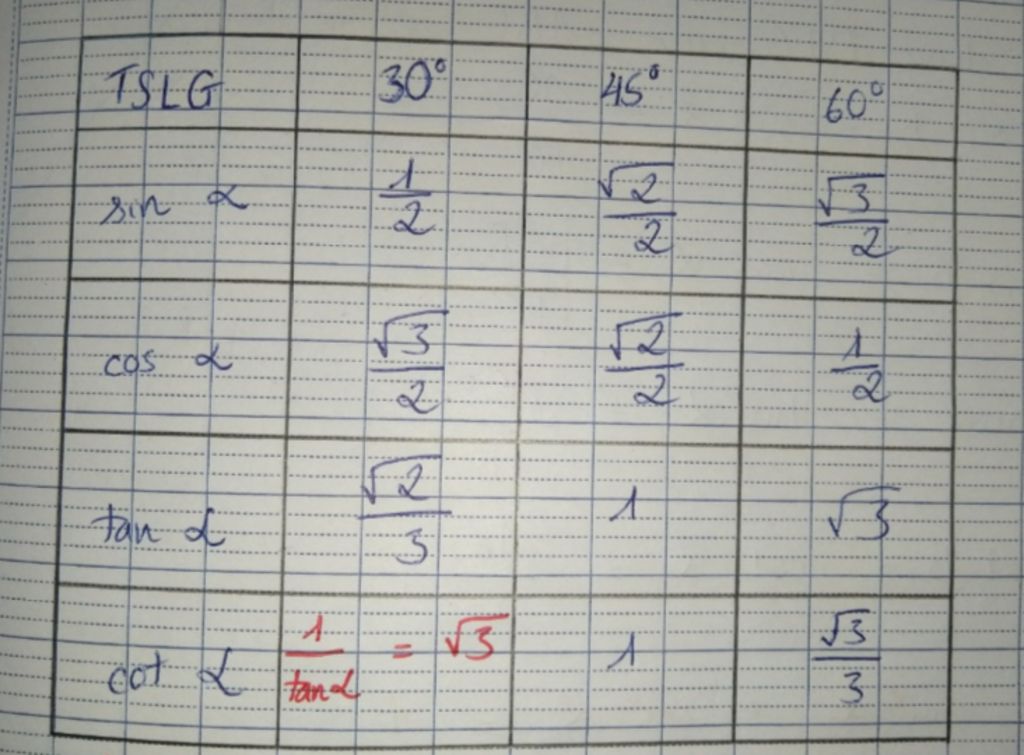 TSLG 30° 45° 60°
sin α 1/2 √2/2 √3/2
cos α √3/2 √2/2 1/2
tan α √2/3 1 √3
cot α 1/tanα = √3 1 √3/3